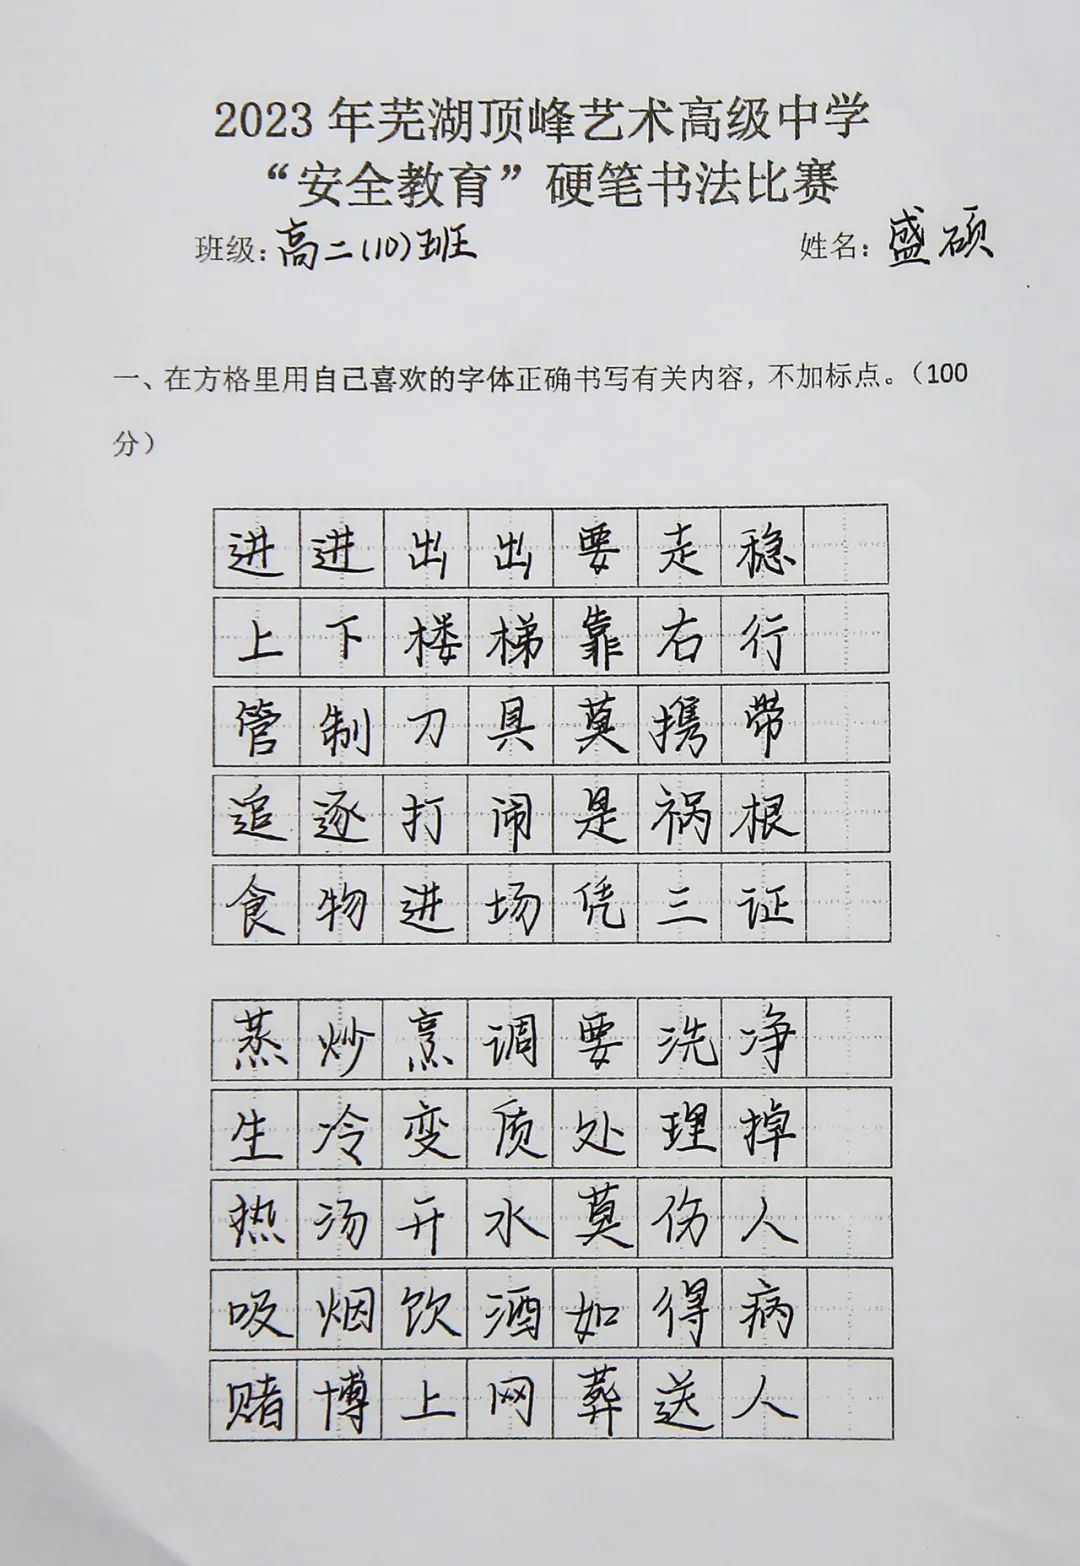 2023 年芜湖顶峰艺术高级中学
“安全教育”硬笔书法比赛
班级：高二(10)班 姓名：盛硕
一、在方格里用自己喜欢的字体正确书写有关内容，不加标点。（100
分）
进进出出要走稳
上下楼梯靠右行
管制刀具莫携带
追逐打闹是祸根
食物进场凭三证
蒸炒烹调要洗净
生冷变质处理掉
热汤开水莫伤人
吸烟饮酒如得病
赌博上网葬送人